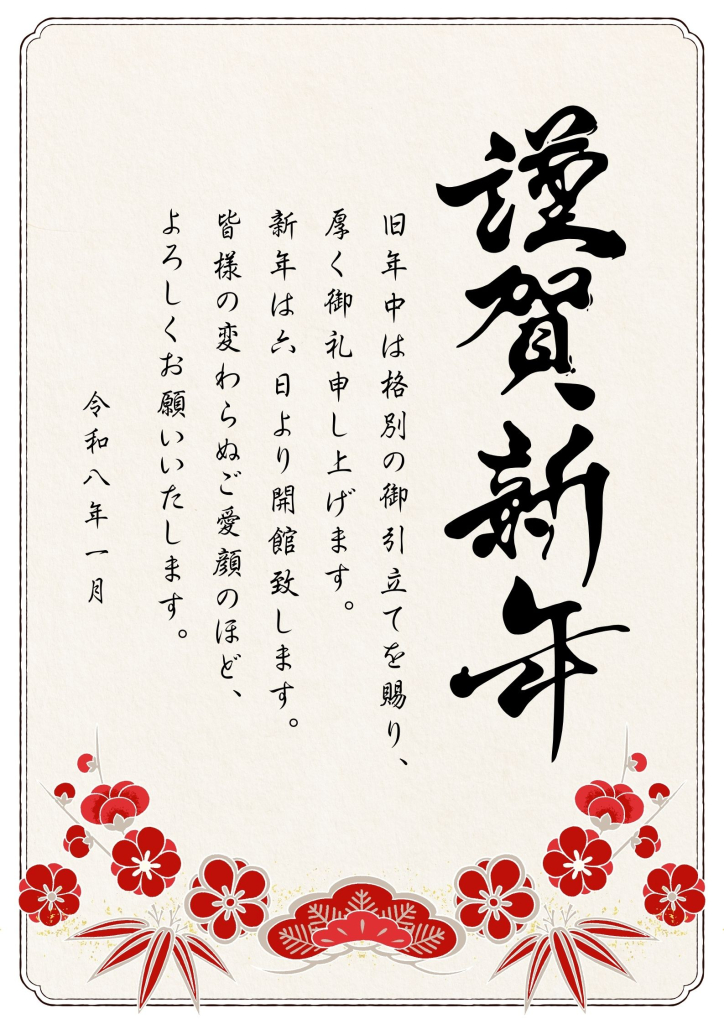 謹賀新年
旧年中は格別の御引立てを賜り、
厚く御礼申し上げます。
新年は六日より開館致します。
皆様の変わらぬご愛顔のほど、
よろしくお願いいたします。
令和八年一月